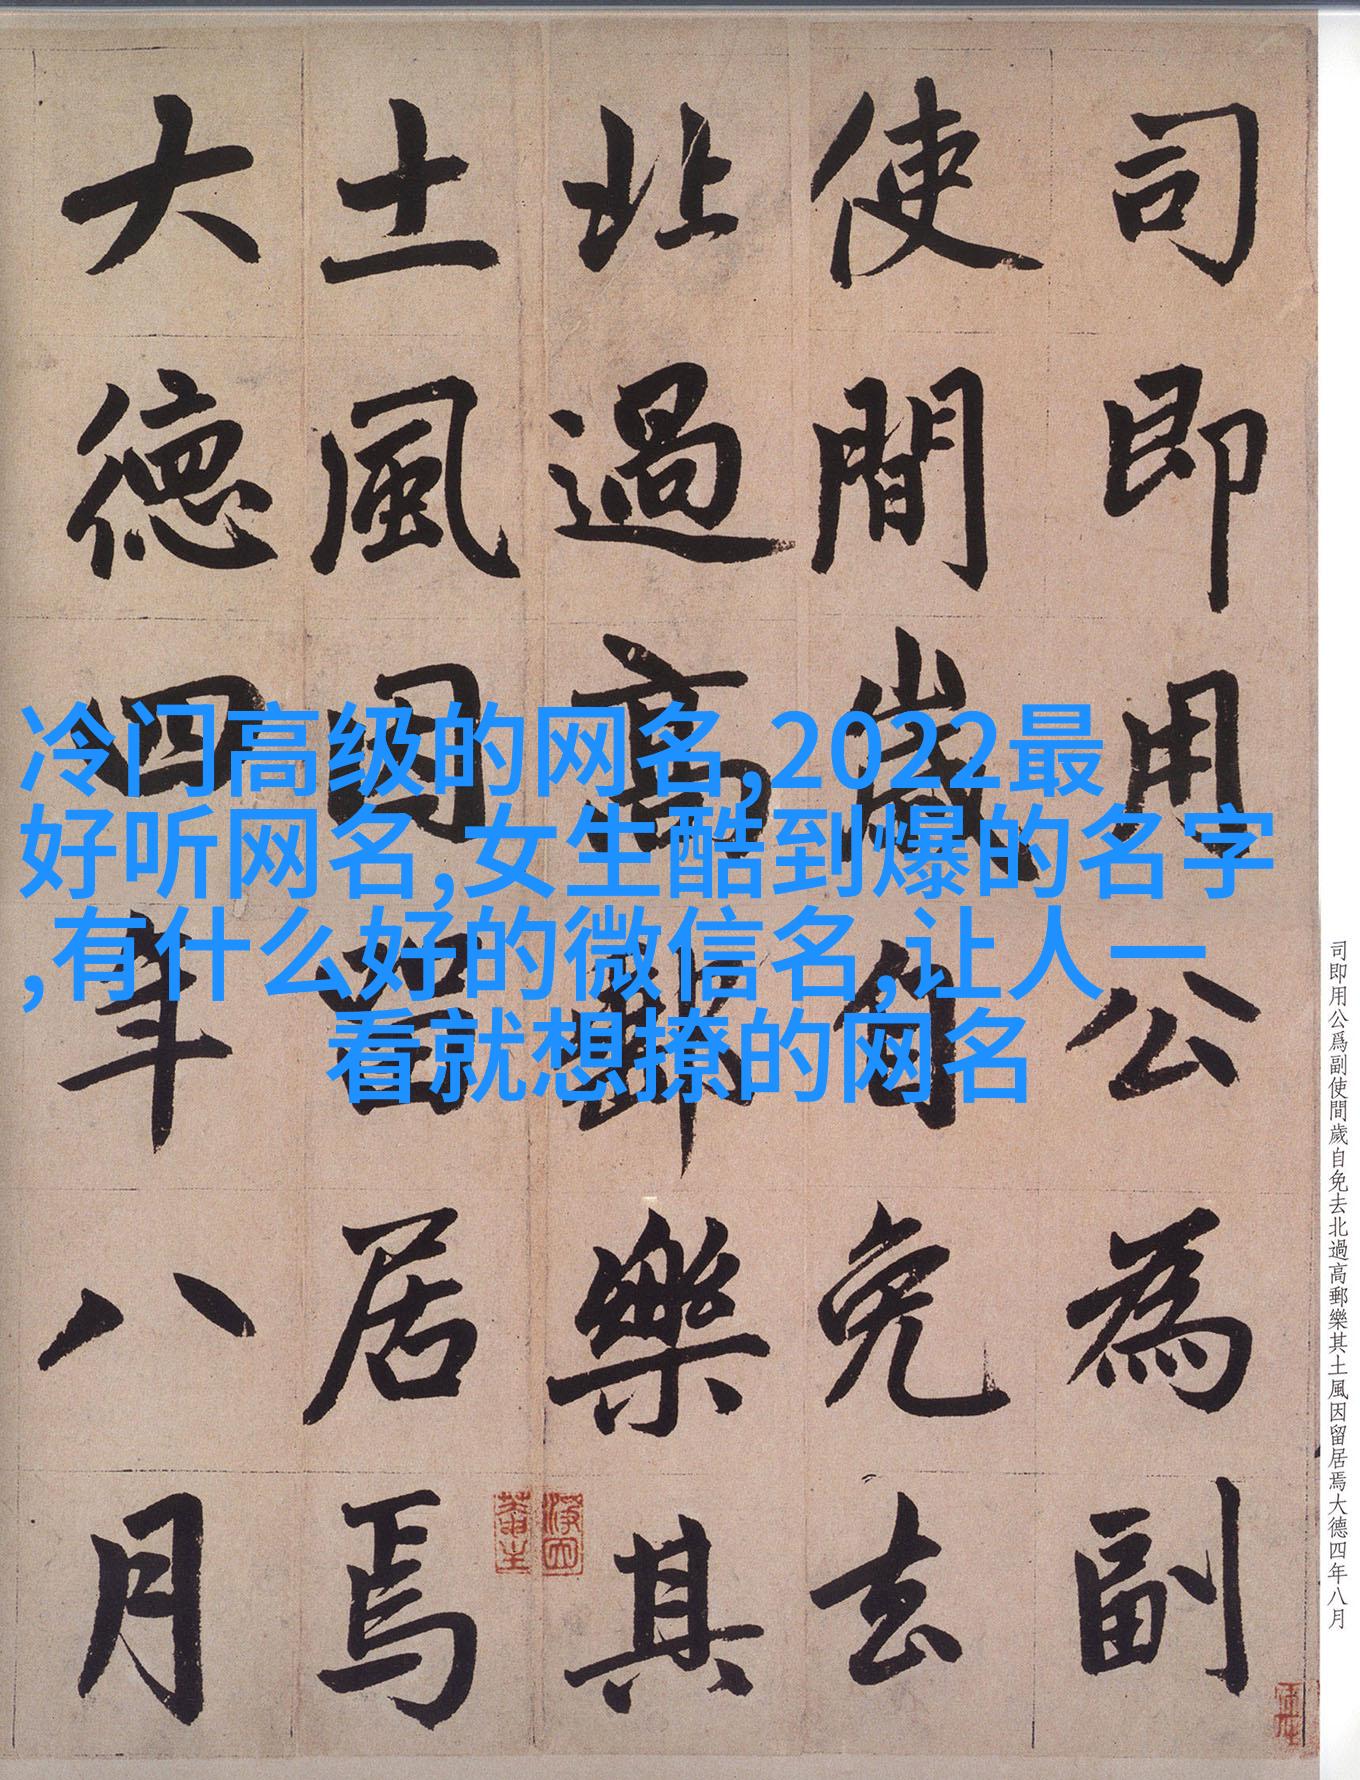 司即用公為副
使間歲自免去
北過高郵樂其
土風因留居焉
大德四年八月
冷门高级的网名,2022最
好听网名,女生酷到爆的名字
,有什么好的微信名,让人一
看就想撩的网名
司即用公爲副使間歲自免去北過高郵樂其土風因留居焉大德四年八月